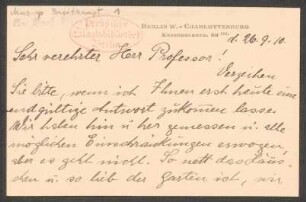 BERLIN W.-CHARLOTTENBURG
d. 26.9.10.
Sehr verehrter Herr Professor!
Verzeihen
Sie bitte, wenn ich Ihnen erst heute eine
endgültige Antwort zukommen lasse.
Wir haben hin u her gemessen u. alle
möglichen Einschränkungen erwogen,
aber es geht nicht. So nett das
u so lieb der Garten ist, wir